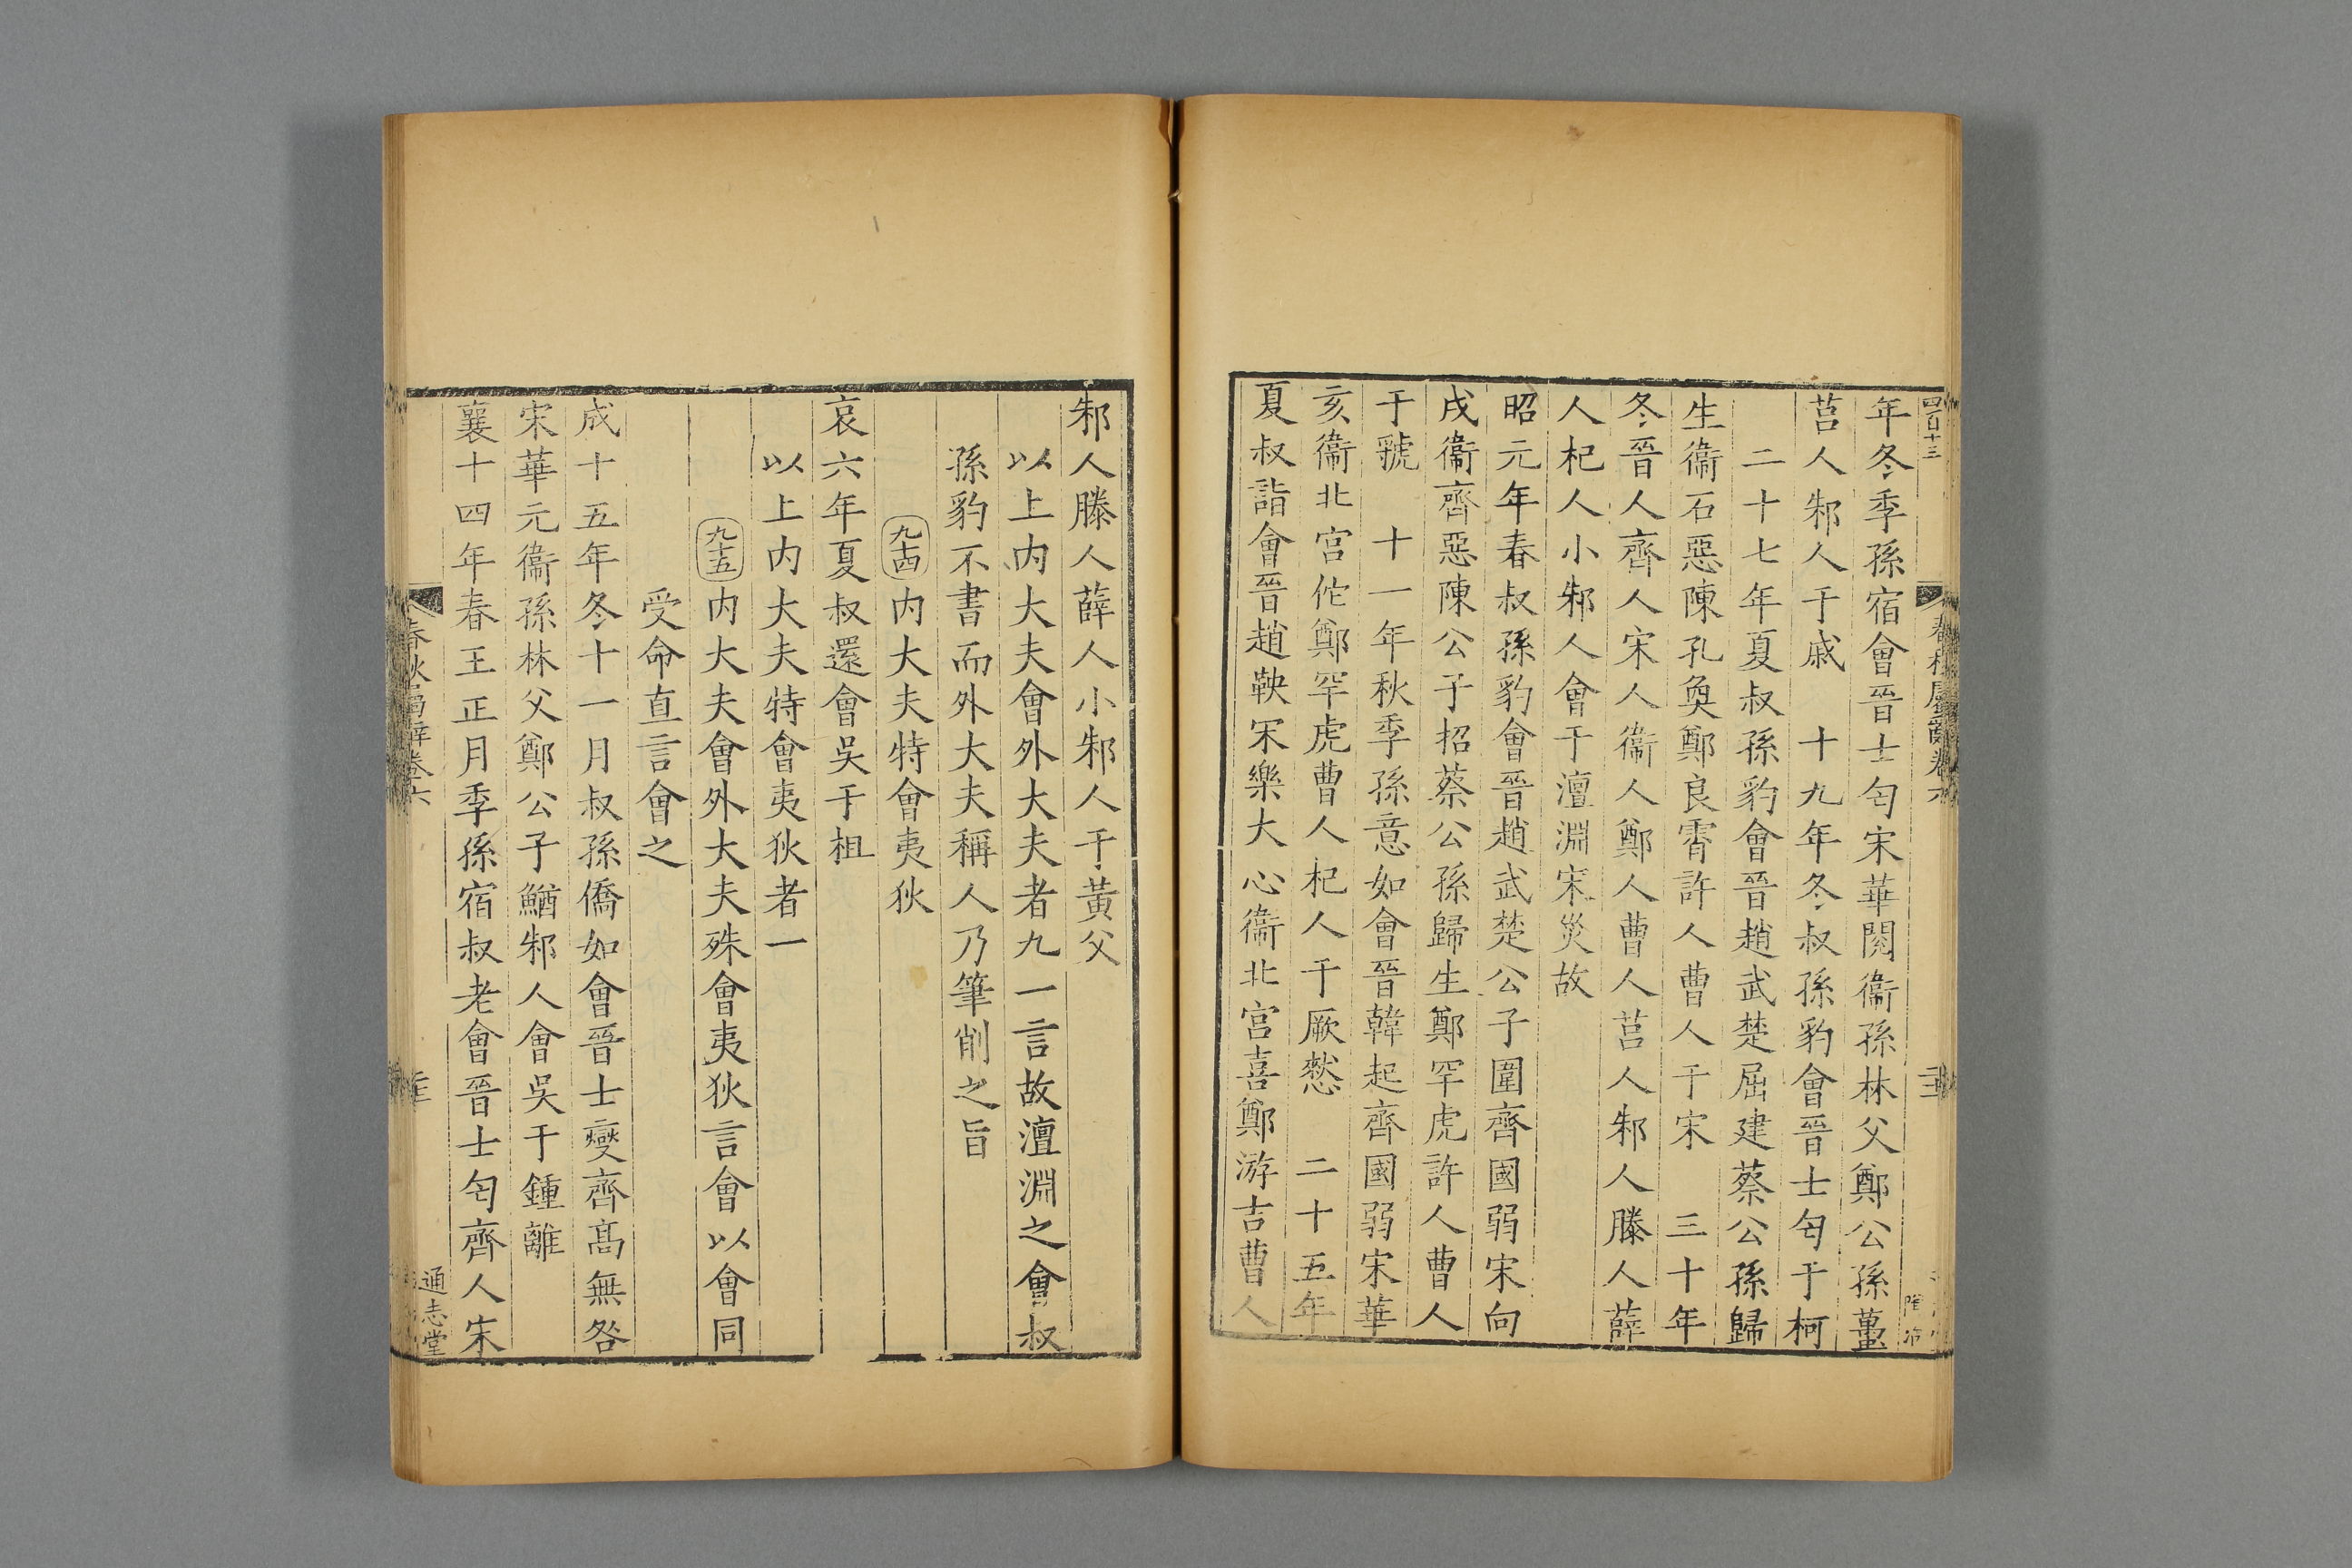 四百十三
年冬季孫宿會晉士匄宋華閱衞孫林父鄭公孫蠆
莒人邾人于戚　十九年冬叔孫豹會晉士匄于柯
二十七年夏叔孫豹會晉趙武楚屈建蔡公孫歸
生衞石惡陳孔奐鄭良霄許人曹人于宋　三十年
冬晉人齊人宋人衞人鄭人曹人莒人邾人滕人薛
人杞人小邾人會于澶淵宋災故
昭元年春叔孫豹會晉趙武楚公子圍齊國弱宋向
戌衞齊惡陳公子招蔡公孫歸生鄭罕虎許人曹人
于虢　十一年秋季孫意如會晉韓起齊國弱宋華
亥衞北宮佗鄭罕虎曹人杞人于厥憖　二十五年
夏叔詣會晉趙鞅宋樂大心衞北宮喜鄭游吉曹人
邾人滕人薛人小邾人于黃父
以上內大夫會外大夫者九一言故澶淵之會叔
孫豹不書而外大夫稱人乃筆削之旨
九十四 內大夫特會夷狄
哀六年夏叔還會吳于柤
以上內大夫特會夷狄者一
九十五 內大夫會外大夫殊會夷狄言會以會同
受命直言會之
成十五年冬十一月叔孫僑如會晉士燮齊高無咎
宋華元衞孫林父鄭公子鰌邾人會吳于鍾離
襄十四年春王正月季孫宿叔老會晉士匄齊人宋
春秋屬辭卷六
通志堂